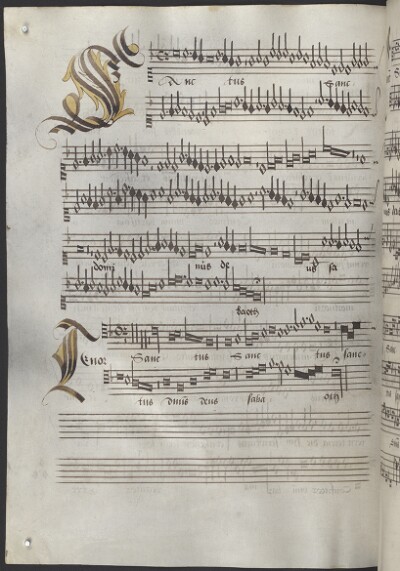 S Anc tus Sanc
domi nus de us sa
baoth
Tenor Sanc tus Sanc tus sanc
tus dnus deus saba oth